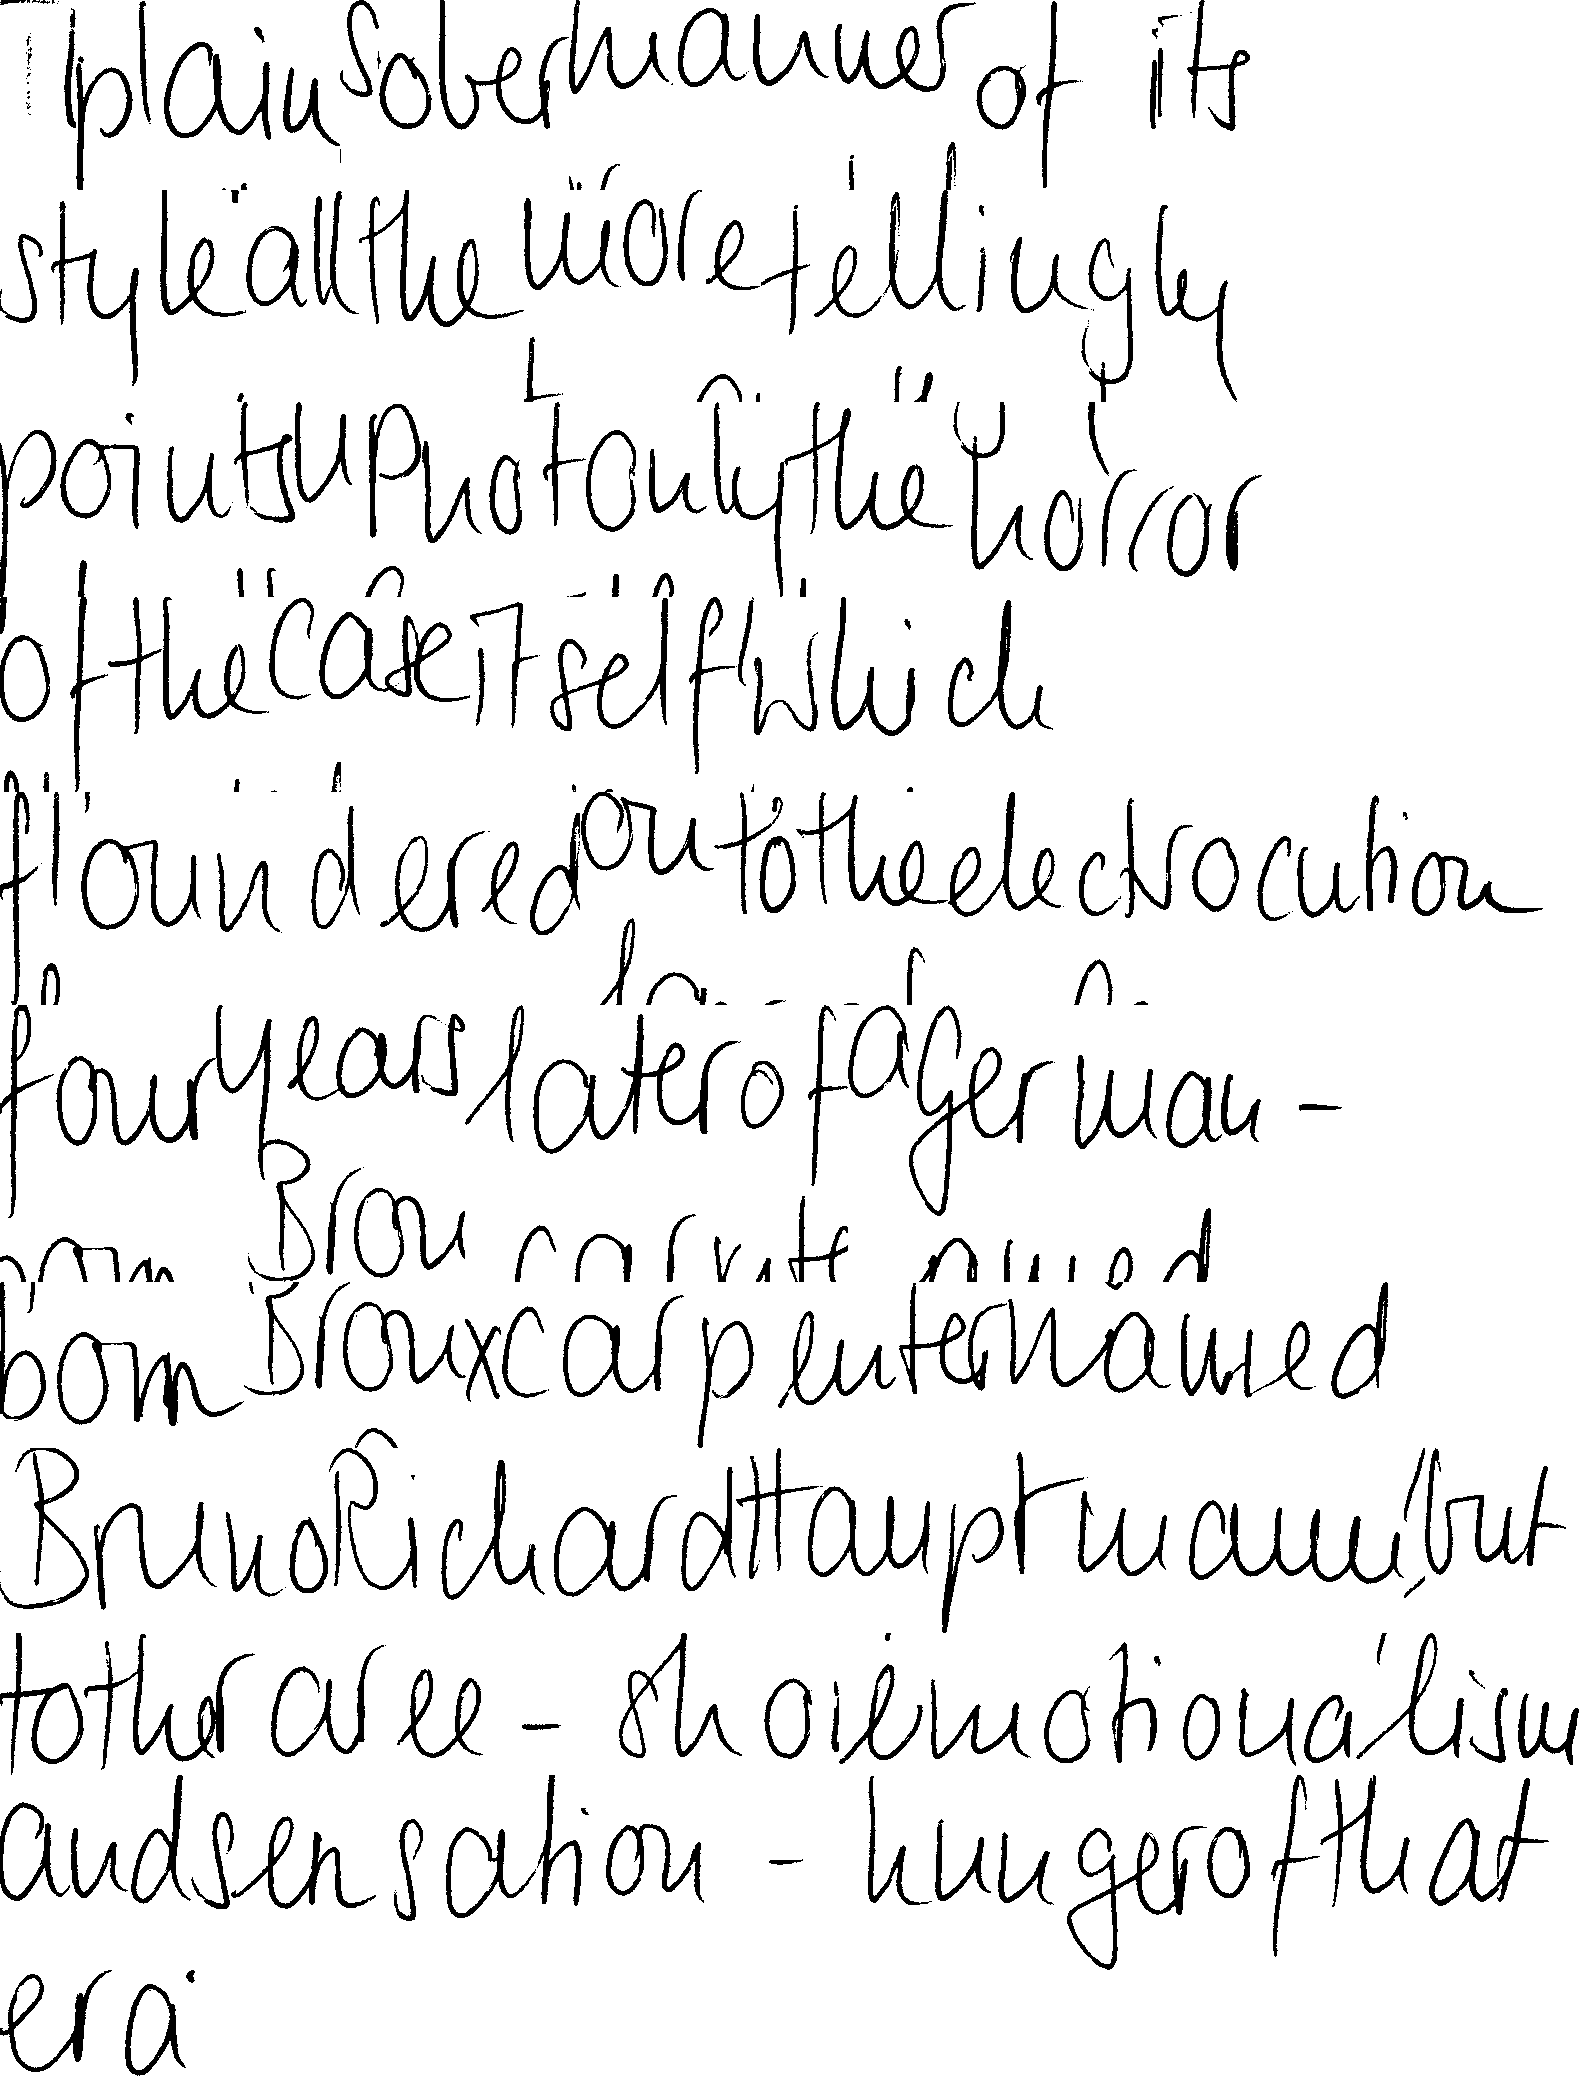 plain sober manner of its
style all the more tellingly
points up not only the horror
of the case itself which
floundered on to the electrocution
four years later of a German-
born Bronx carpenter named
Bruno Richard Hauptmann, but
to the raree-shoiemotionalism
and sensation-hunger of that
era.